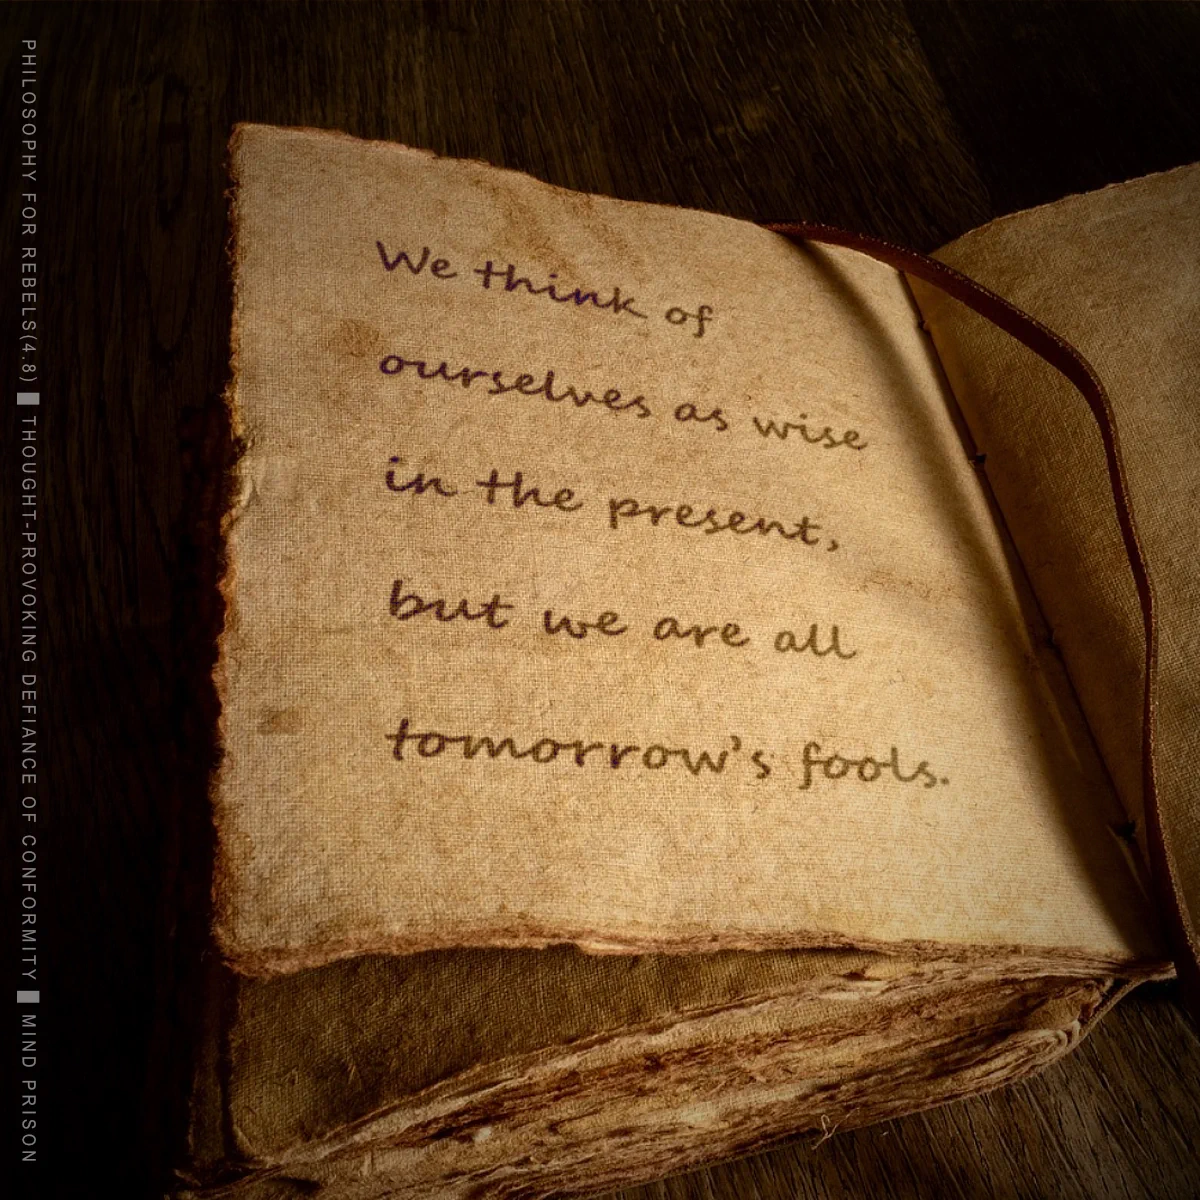 We think of
ourselves as wise
in the present,
but we are all
tomorrow's fools.
PHILOSOPHY FOR REBELS(4.8) █ THOUGHT-PROVOKING DEFIANCE OF CONFORMITY █ MIND PRISON